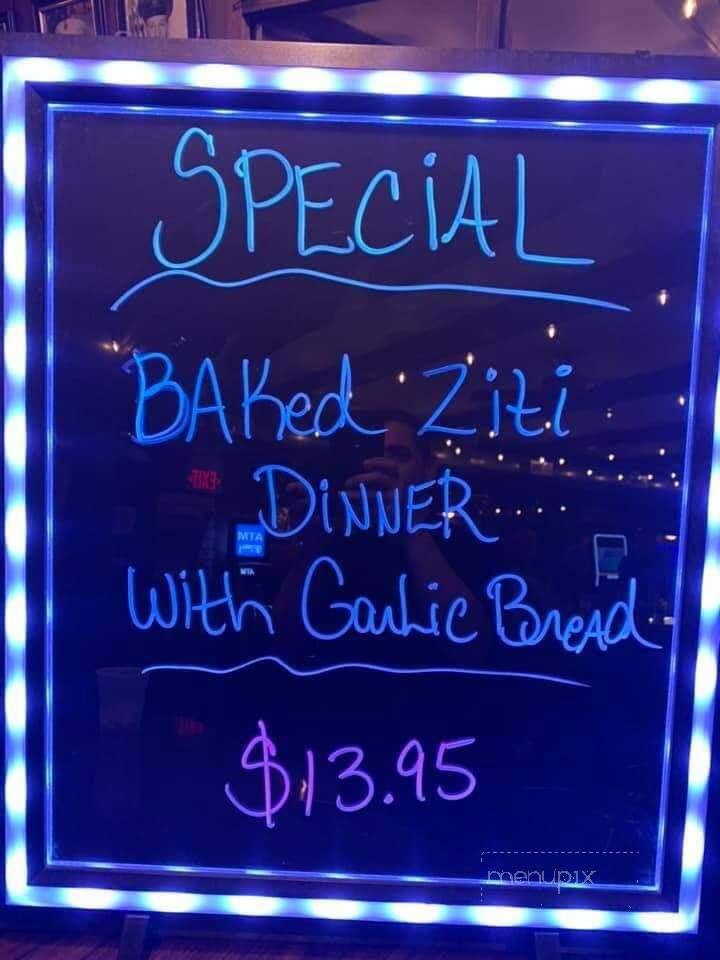 SPECiAL
BAKed Ziti
DiNNER
With Garlic BreAd
$13.95
EXIT
MTA
MTA
menupix